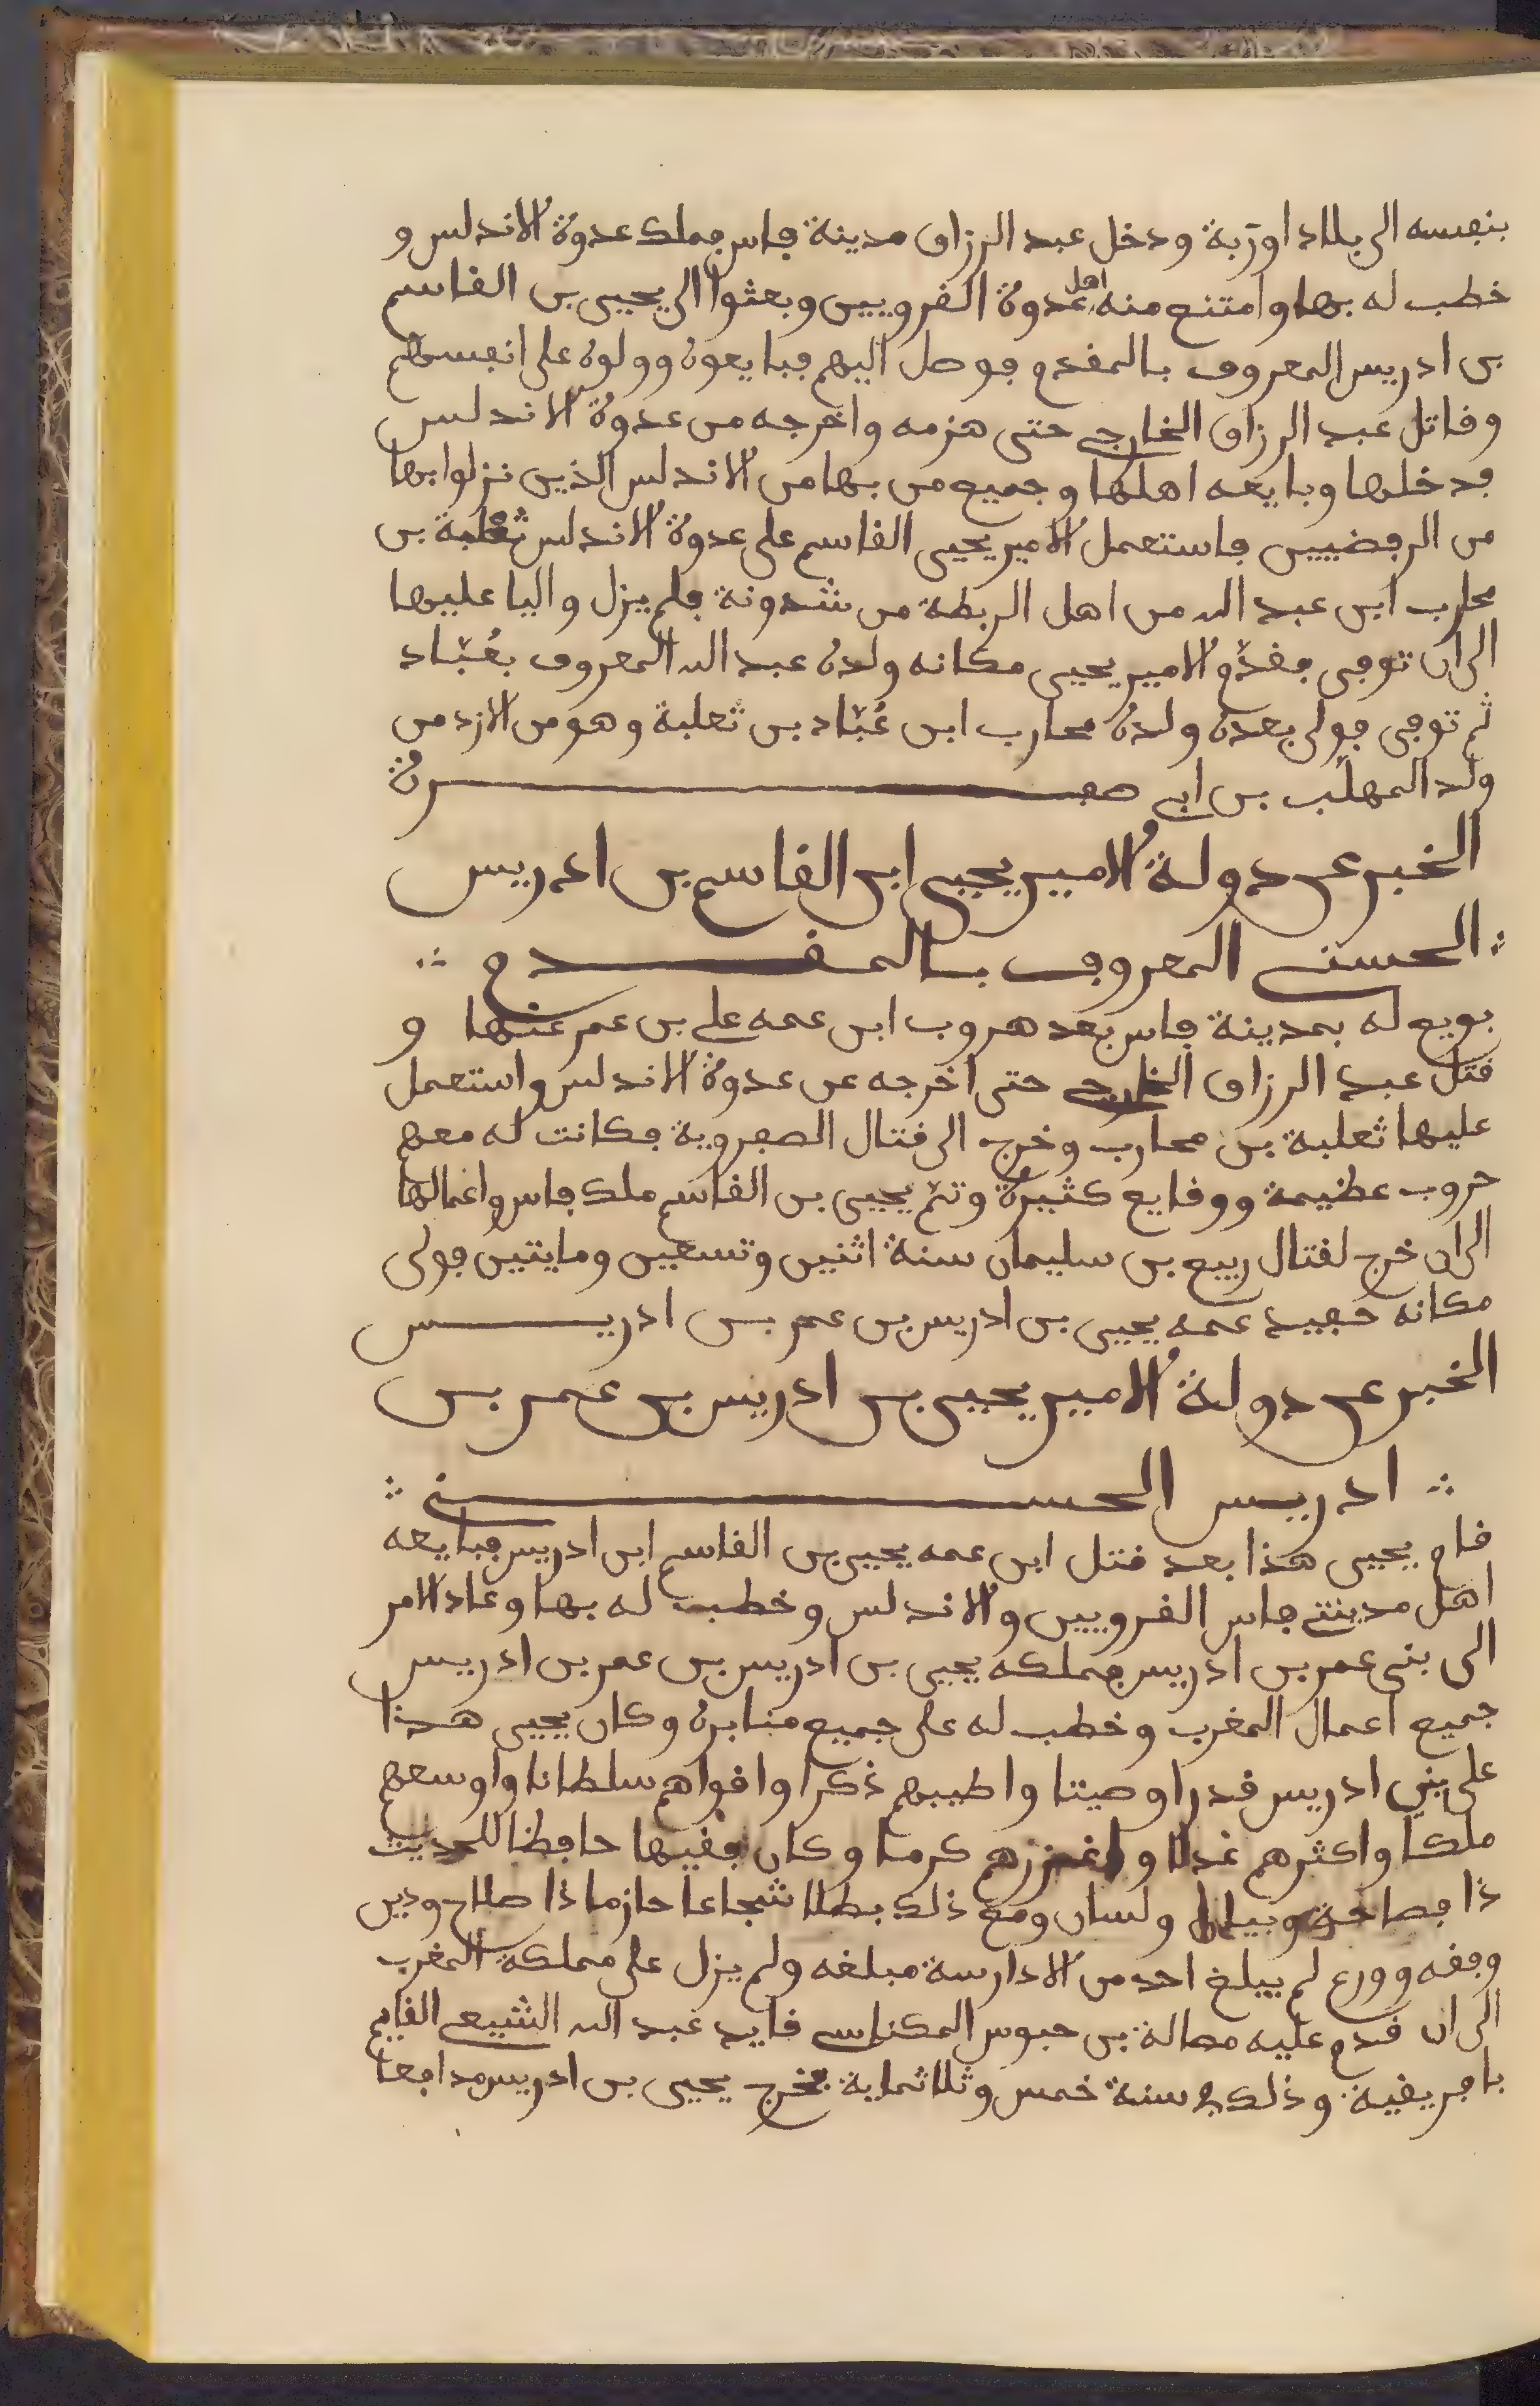 بنفسه الى بلاد اورَبة ودخل عبد الرزاق مدينة فاس فملك عدوة الاندلس و
خطب له بها وامتنع منه اهل عدوة القرويين وبعثوا الى يحيى بن القاسم
بن ادريس المعروف بالمقدم فوصل اليهم فبايعوه وولوه على انفسهم
وقاتل عبد الرزاق الخارجي حتى هزمه واخرجه من عدوة الاندلس
فدخلها وبايعه اهلها وجميع من بها من الاندلس الذين نزلوا بها
من الرفضيين فاستعمل الامير يحيى القاسم على عدوة الاندلس ثعلبة بن
محارب ابن عبد الله من اهل الربطة من شدونة فلم يزل واليا عليها
الى ان توفى فقدّم الامير يحيى مكانه ولده عبد الله المعروف بعُبّاد
ثم توفى فولى بعده ولده محارب ابن عُبّاد بن ثعلبة وهو من الازد من
ولد المهلّب بن ابي صفرة
الخبر عن دولة الامير يحيى ابن القاسم بن ادريس
الحسني المعروف بالمقدم
بويع له بمدينة فاس بعد هروب ابن عمه علي بن عمر عنها و
قتل عبد الرزاق الخارجي حتى اخرجه عن عدوة الاندلس واستعمل
عليها ثعلبة بن محارب وخرج الى قتال الصفروية فكانت له معهم
حروب عظيمة ووقايع كثيرة وتمّ يحيى بن القاسم ملك فاس واعمالها
الى ان خرج لقتال ربيع بن سليمان سنة اثنين وتسعين ومايتين فولى
مكانه حفيد عمه يحيى بن ادريس بن عمر بن ادريس
الخبر عن دولة الامير يحيى بن ادريس بن عمر بن
ادريس الحسني
قام يحيى هذا بعد قتل ابن عمه يحيى بن القاسم ابن ادريس فبايعه
اهل مدينتي فاس القرويين والاندلس وخطب له بها وعاد الامر
الى بنى عمر بن ادريس فملكه يحيى بن ادريس بن عمر بن ادريس
جميع اعمال المغرب وخطب له على جميع منابره وكان يحيى هذا
على بني ادريس قدرا وصيتا واطيبهم ذكرا واقواهم سلطانا واوسعهم
ملكا واكثرهم عدلا واغزرهم كرما وكان فقيها حافظا للحديث
ذا فصاحة وبيان ولسان ومع ذلك بطلا شجاعا حازما ذا صلاح ودين
وفقه وورع لم يبلغ احد من الادارسة مبلغه ولم يزل على مملكة المغرب
الى ان قدم عليه مصالة بن حبوس المكناسي قايد عبد الله الشيعي القايم
بافريقية وذلك في سنة خمس وثلاثماية فخرج يحيى بن ادريس مدافعا